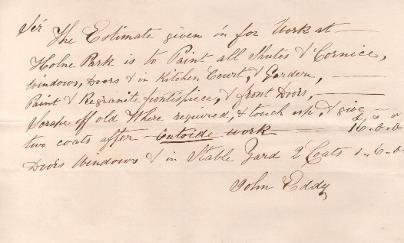 Sir
The Estimate given in for Work at —
Holne Park is to Paint all Shutes & Cornice,
Windows, Doors & in Kitchen Court, & Garden,
Paint & Regranite frontispiece, & front Doors, —
Scrape off old Where required, & touch up, & give —
two coats after — Outside work — 16.0.0
Doors Windows & in Stable Yard 2 Coats 1.6.0
John Eddy